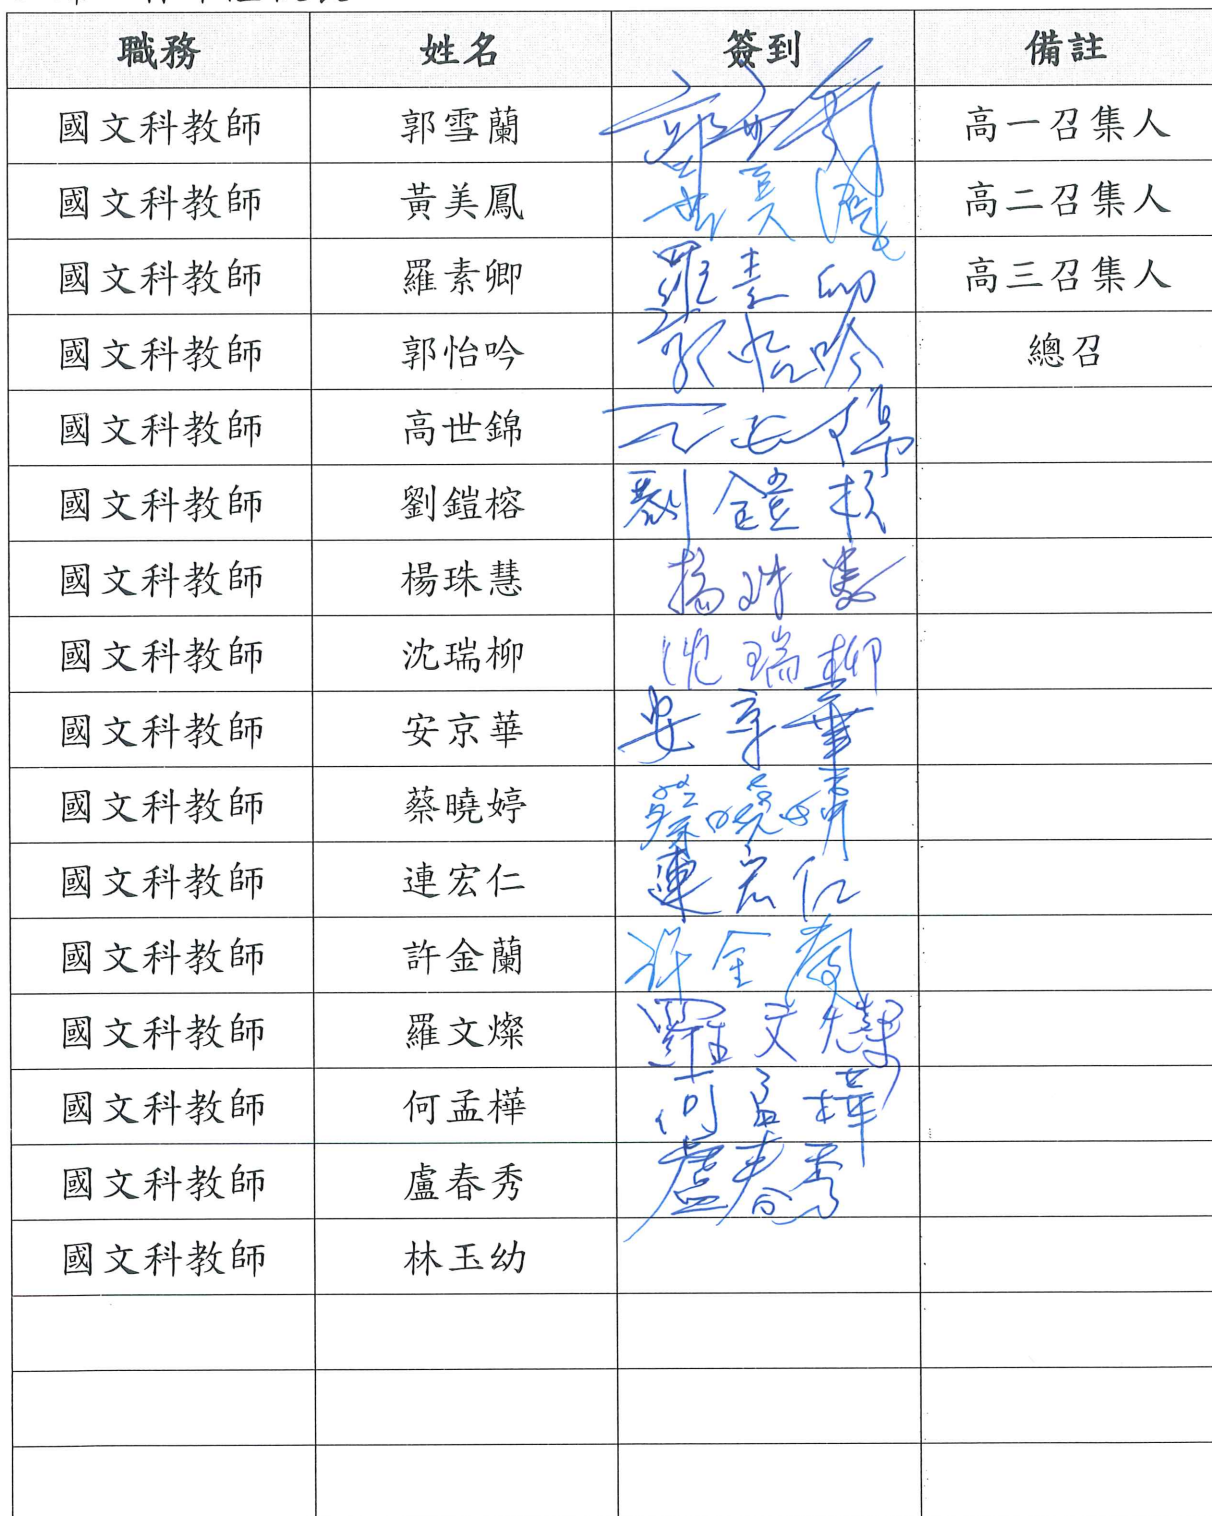 職務 姓名 簽到 備註
國文科教師 郭雪蘭 高一召集人
國文科教師 黃美鳳 黃美鳳 高二召集人
國文科教師 羅素卿 羅素卿 高三召集人
國文科教師 郭怡吟 郭怡吟 總召
國文科教師 高世錦
國文科教師 劉鎧榕 劉鎧榕
國文科教師 楊珠慧 楊珠慧
國文科教師 沈瑞柳 沈瑞柳
國文科教師 安京華 安京華
國文科教師 蔡曉婷 蔡曉婷
國文科教師 連宏仁 連宏仁
國文科教師 許金蘭 許金蘭
國文科教師 羅文燦 羅文燦
國文科教師 何孟樺 何孟樺
國文科教師 盧春秀 盧春秀
國文科教師 林玉幼